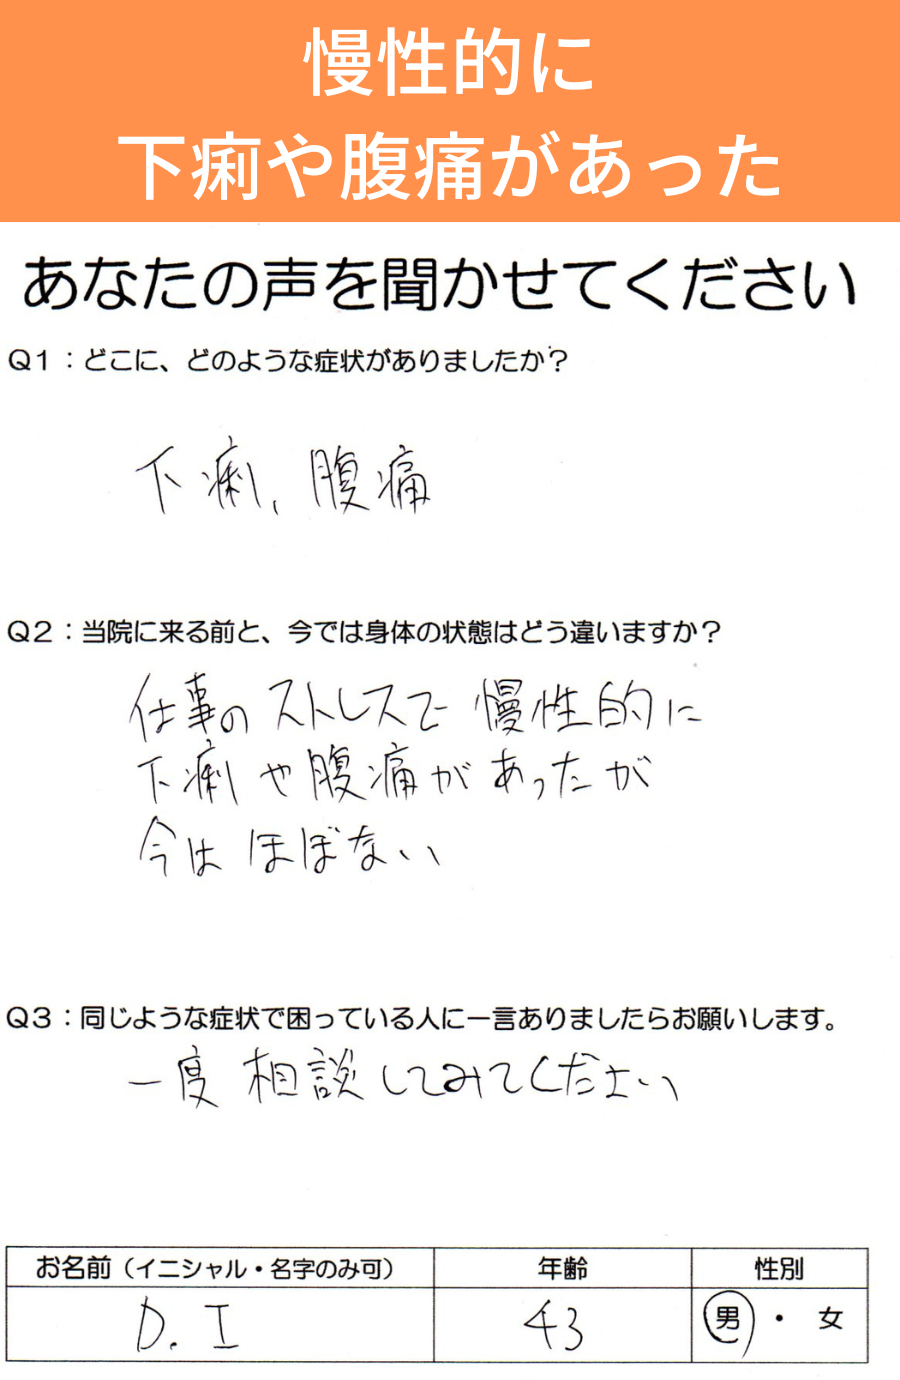 慢性的に
下痢や腹痛があった
あなたの声を聞かせてください
Q1：どこに、どのような症状がありましたか？
下痢、腹痛
Q2：当院に来る前と、今では身体の状態はどう違いますか？
仕事のストレスで 慢性的に
下痢や腹痛があったが
今は ほぼない
Q3：同じような症状で困っている人に一言ありましたらお願いします。
一度 相談してみてください
お名前（イニシャル・名字のみ可） 年齢 性別
D.I 43 男・女